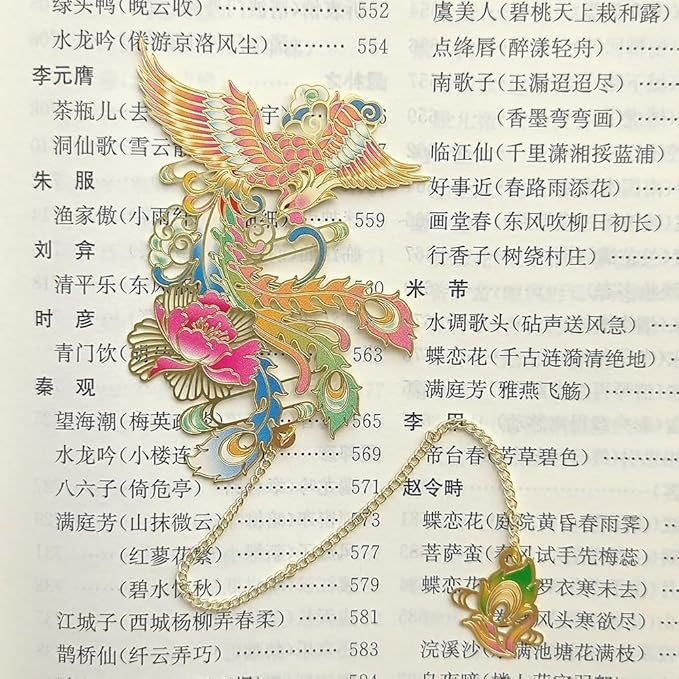 绿头鸭(晚云收)……552
水龙吟(倦游京洛风尘)……554
李元膺
茶瓶儿(去
洞仙歌(雪云
朱 服
渔家傲(小雨……559
刘 弇
清平乐(东
时 彦
青门饮(……563
秦 观
望海潮(梅英……565
水龙吟(小楼连……569
八六子(倚危亭)……571
满庭芳(山抹微云)……73
(红蓼花繁……577
(碧水惊秋……579
江城子(西城杨柳弄春柔)……581
鹊桥仙(纤云弄巧)……583
虞美人(碧桃天上栽和露)
点绛唇(醉漾轻舟)
南歌子(玉漏迢迢尽)
(香墨弯弯画)
临江仙(千里潇湘挼蓝浦)
好事近(春路雨添花)
画堂春(东风吹柳日初长)
行香子(树绕村庄)
米 芾
水调歌头(砧声送风急)
蝶恋花(千古涟漪清绝地)
满庭芳(雅燕飞觞)
李
帝台春(芳草碧色)
赵令畤
蝶恋花(庭院黄昏春雨霁)
菩萨蛮(春风试手先梅蕊)
蝶恋花 罗衣寒未去)
风头寒欲尽)
浣溪沙 满池塘花满枝)